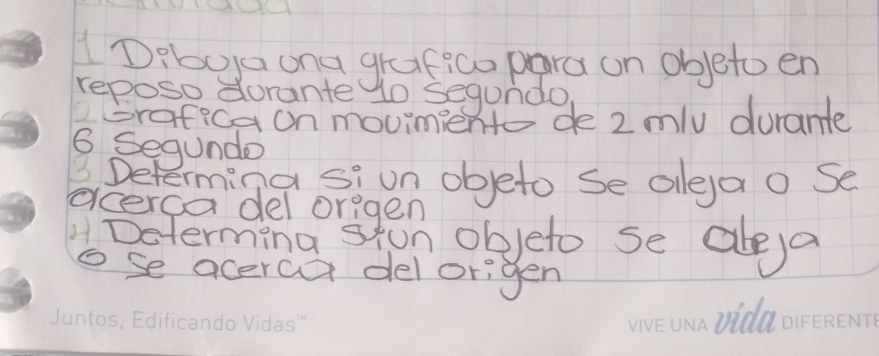 1 Dibuja una grafica para un objeto en
reposo durante 10 segundo
2 Grafica un movimiento de 2 m/v durante
6 Segundo
3 Determina si un objeto se aleja o se
acerca del origen
4 Determina si un objeto se aleja
o se acerca del origen
Juntos, Edificando Vidas™
VIVE UNA vida DIFERENTE